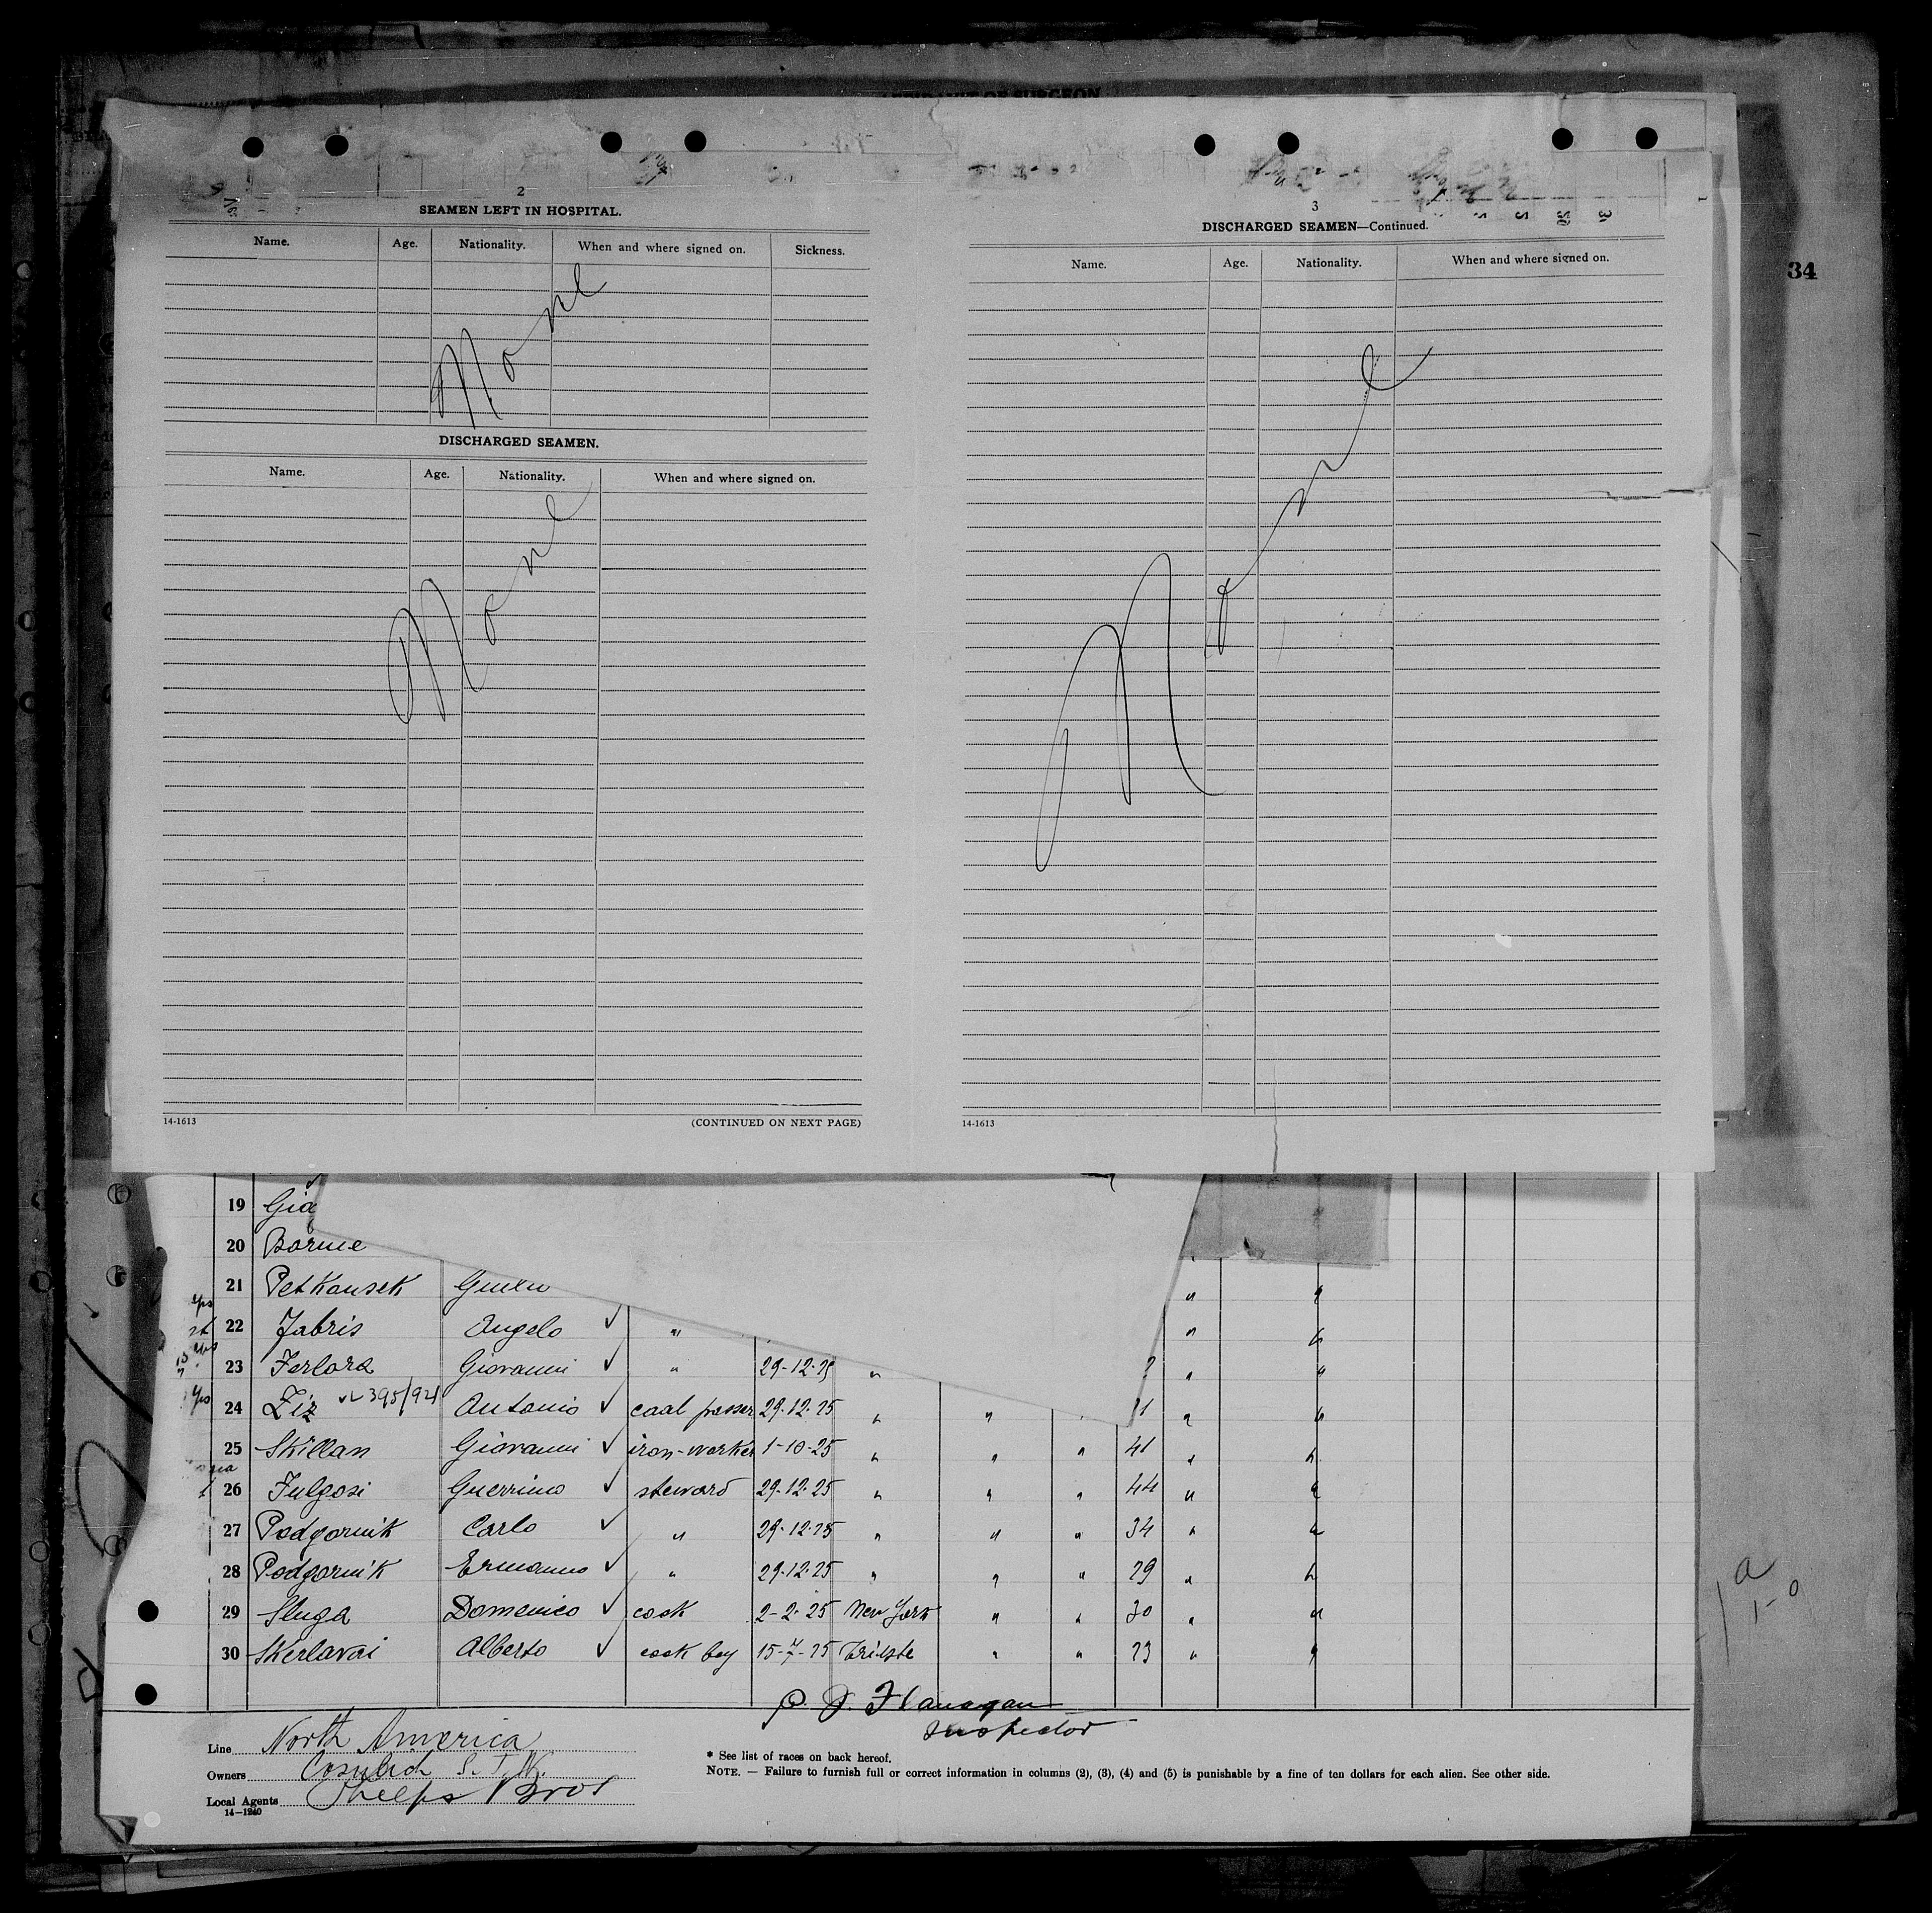 2
SEAMEN LEFT IN HOSPITAL.
Name. Age. Nationality. When and where signed on. Sickness.
None
DISCHARGED SEAMEN.
Name. Age. Nationality. When and where signed on.
None
14-1613 (CONTINUED ON NEXT PAGE)
3
DISCHARGED SEAMEN—Continued.
Name. Age. Nationality. When and where signed on.
None
14-1613
34
19 Gia
20 Borme
21 Petkousek " "
22 Fabris Angelo ✓ " " "
23 Ferlora Giovanni ✓ " 29-12-25 " 2 " "
24 Ziz 395/921 Antonio ✓ coal passer 29.12.25 " " " 1 " "
25 Skillan Giovanni ✓ iron-worker 1-10-25 " " " 41 " "
26 Fulgosi Guerrino ✓ steward 29.12.25 " " " 44 " "
27 Podgornik Carlo ✓ " 29.12.25 " " " 34 " "
28 Podgornik Ermanno ✓ " 29.12.25 " " " 29 " "
29 Sluga Domenico ✓ cook 2-2-25 New York " " 30 " "
30 Skerlavai Alberto ✓ cook boy 15-7-25 Trieste " " 23 " "
P. J. Flanagan
Inspector
Line North America
Owners Cosulich S. T. N.
Local Agents Phelps Bros
14—1240
* See list of races on back hereof.
NOTE. — Failure to furnish full or correct information in columns (2), (3), (4) and (5) is punishable by a fine of ten dollars for each alien. See other side.